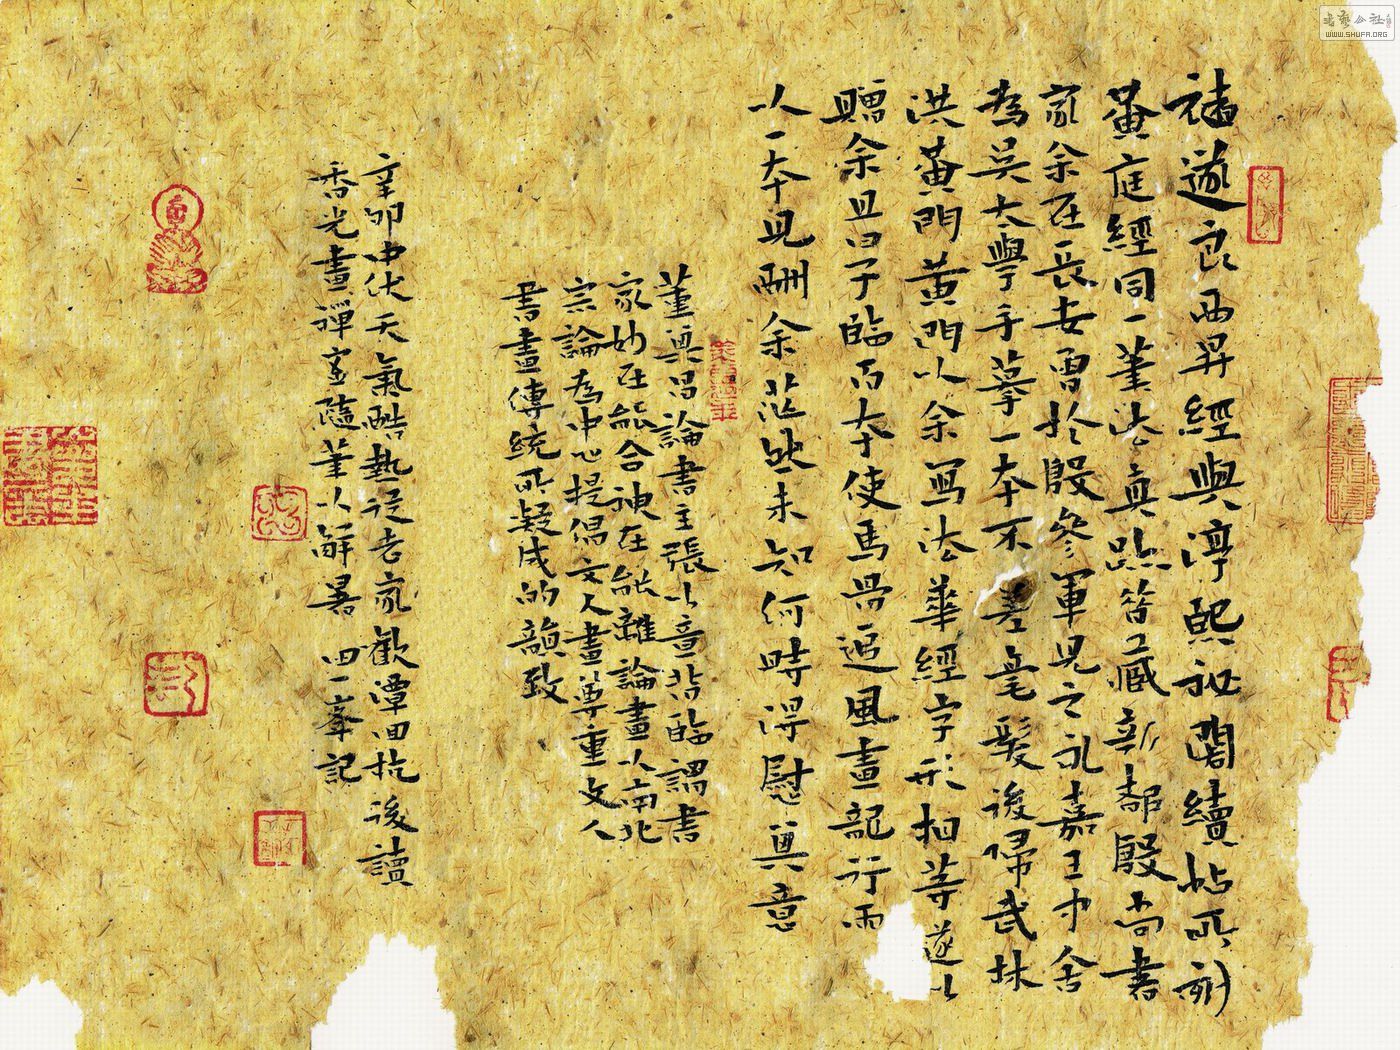 褚遂良西昇經與淳熙祕閣續帖所刻
黃庭經同一筆法真跡皆藏新都殷尚書
家余在長安曾於殷參軍見之乳嘉王中舍
為吳太學手摹一本不差毫髮後歸武林
洪黃門黃門以余寫法華經字形相等遂以
贈余且曰子臨百本使馬骨追風畫龍行雨
以一本見酬余茫然未知何時得慰其意
董其昌論書主張以意背臨謂書
家妙在能合神在能離論畫以南北
宗論為中心提倡文人畫尊重文人
書畫傳統所凝成的韻致
辛卯中伏天氣酷熱從老家歡潭田抗後讀
香光畫禪室隨筆以解暑 四一峯記
書藝公社
WWW.SHUFA.ORG